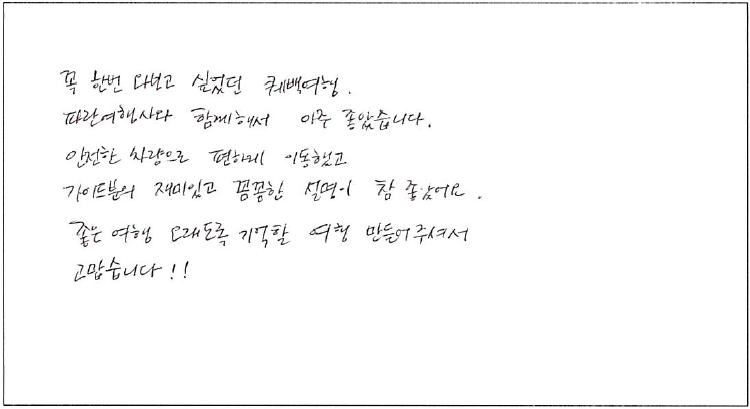 꼭 한번 와보고 싶었던 퀘백여행.
파란여행사와 함께해서 아주 좋았습니다.
안전한 차량으로 편하게 이동했고
가이드분의 재미있고 꼼꼼한 설명이 참 좋았어요.
좋은 여행 오래도록 기억할 여행 만들어주셔서
고맙습니다!!